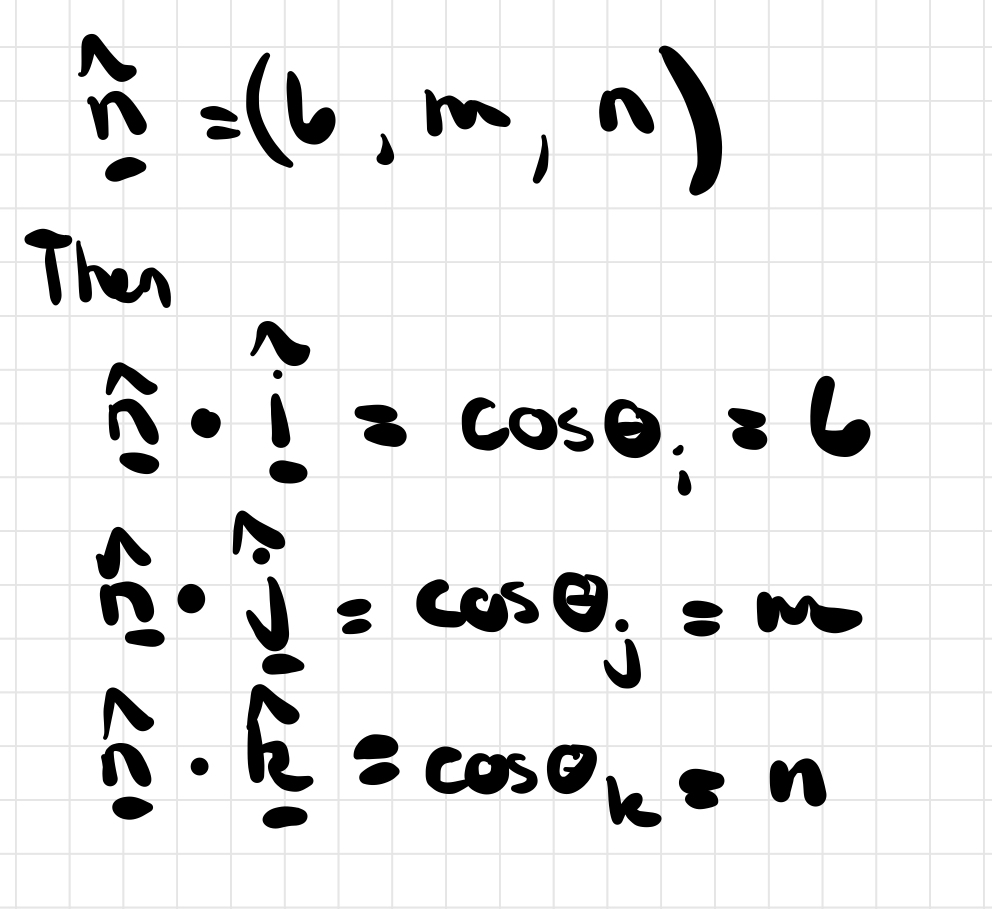 n̲̂ = (b, m, n)
Then
n̲̂ · î̲ = cosθᵢ = b
n̲̂ · ĵ̲ = cosθⱼ = m
n̲̂ · k̲̂ = cosθₖ = n